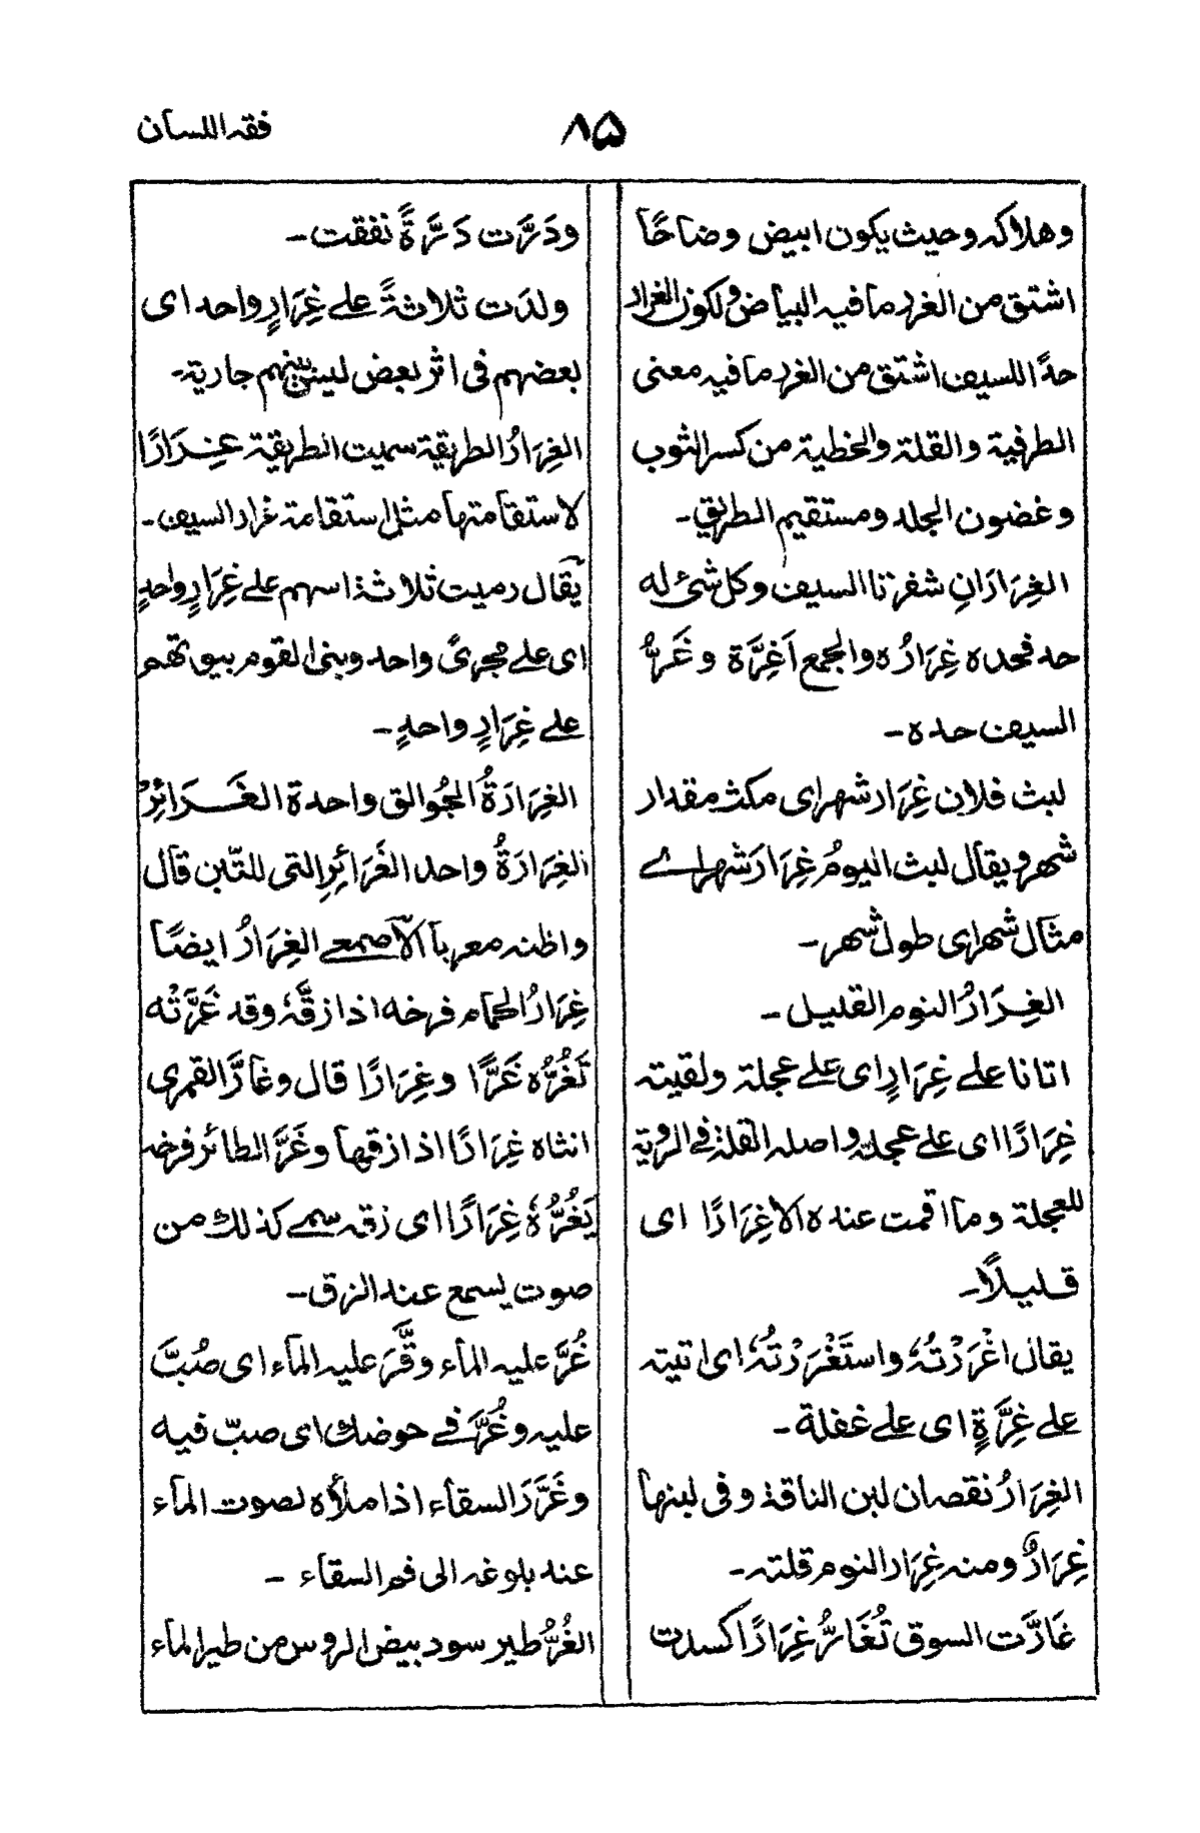 فقہ اللسان
۸۵
وھلاکہ وحیث یکون ابیض وضاحًا
اشتق من الغرر ما فیہ البیاض ولکون الغرار
حدًّا للسیف اشتق من الغرر ما فیہ معنی
الطرفیة والقلة والخطیة من کسر الثوب
وغضون الجلد ومستقیم الطریق۔
الغِرَارَانِ شفرتا السیف وکل شئ له
حد فحدہ غِرَارُہ والجمع اَغِرَّة وغَرُّ
السیف حدہ۔
لبث فلان غِرَار شھر ای مکث مقدار
شھر ویقال لبث الیومُ غِرَارَ شھر اے
مثال شھر ای طول شھر۔
الغِرَارُ النوم القلیل۔
اتانا علے غِرَارٍ ای علے عجلة ولقیتہ
غِرَارًا ای علے عجلة واصلہ القلة فے الرویة
للعجلة وما اقمت عندہ الا غِرَارًا ای
قلیلًا۔
یقال اغْرَرْتُہٗ واستَغْرَرْتُہٗ ای اتیتہ
علے غِرَّةٍ ای علے غفلة۔
الغِرَارُ نقصان لبن الناقة وفی لبنھا
غِرَارٌ ومنہ غِرَار النوم قلتہ۔
غَارَّت السوق تُغَارُّ غِرَارًا کسدت
ودَرَّت دَرَّةً نفقت۔
ولدَت ثلاثةً علے غِرَارٍ واحد ای
بعضھم فی اثر بعض لیس بینھم جاریة۔
الغِرَارُ الطریقة سمیت الطریقة غِرَارًا
لاستقامتھا مثل استقامة غرار السیف۔
یقال رمیت ثلاثة اسھم علے غِرَارٍ واحدٍ
ای علے مجریً واحد وبنی القوم بیوتھم
علے غِرَارٍ واحدٍ۔
الغِرَارَةُ الجُوالق واحدة الغَرَائِرْ
الغِرَارَةُ واحد الغَرَائِرِ التی للتّبن قال
واظنہ معربا الاصمعے الغِرَارُ ایضًا
غِرَارُ الحمام فرخه اذا زقَّہٗ وقد غَرَّتْه
تَغُرُّہ غَرًّا وغِرَارًا قال وغارَّ القمری
انثاہ غِرَارًا اذا زقھا وغَرَّ الطائر فرخہ
یَغُرُّہٗ غِرَارًا ای زقہ سمے کذلك من
صوت یسمع عند الزق۔
غُرَّ علیہ الماء وقَرَّ علیہ الماء ای صُبَّ
علیہ وغُرَّ فے حوضك ای صبّ فیه
وغَرَّرَ السقاء اذا ملأہ لصوت الماء
عند بلوغہ الی فم السقاء ۔
الغُرُّ طیر سود بیض الروس من طیر الماء